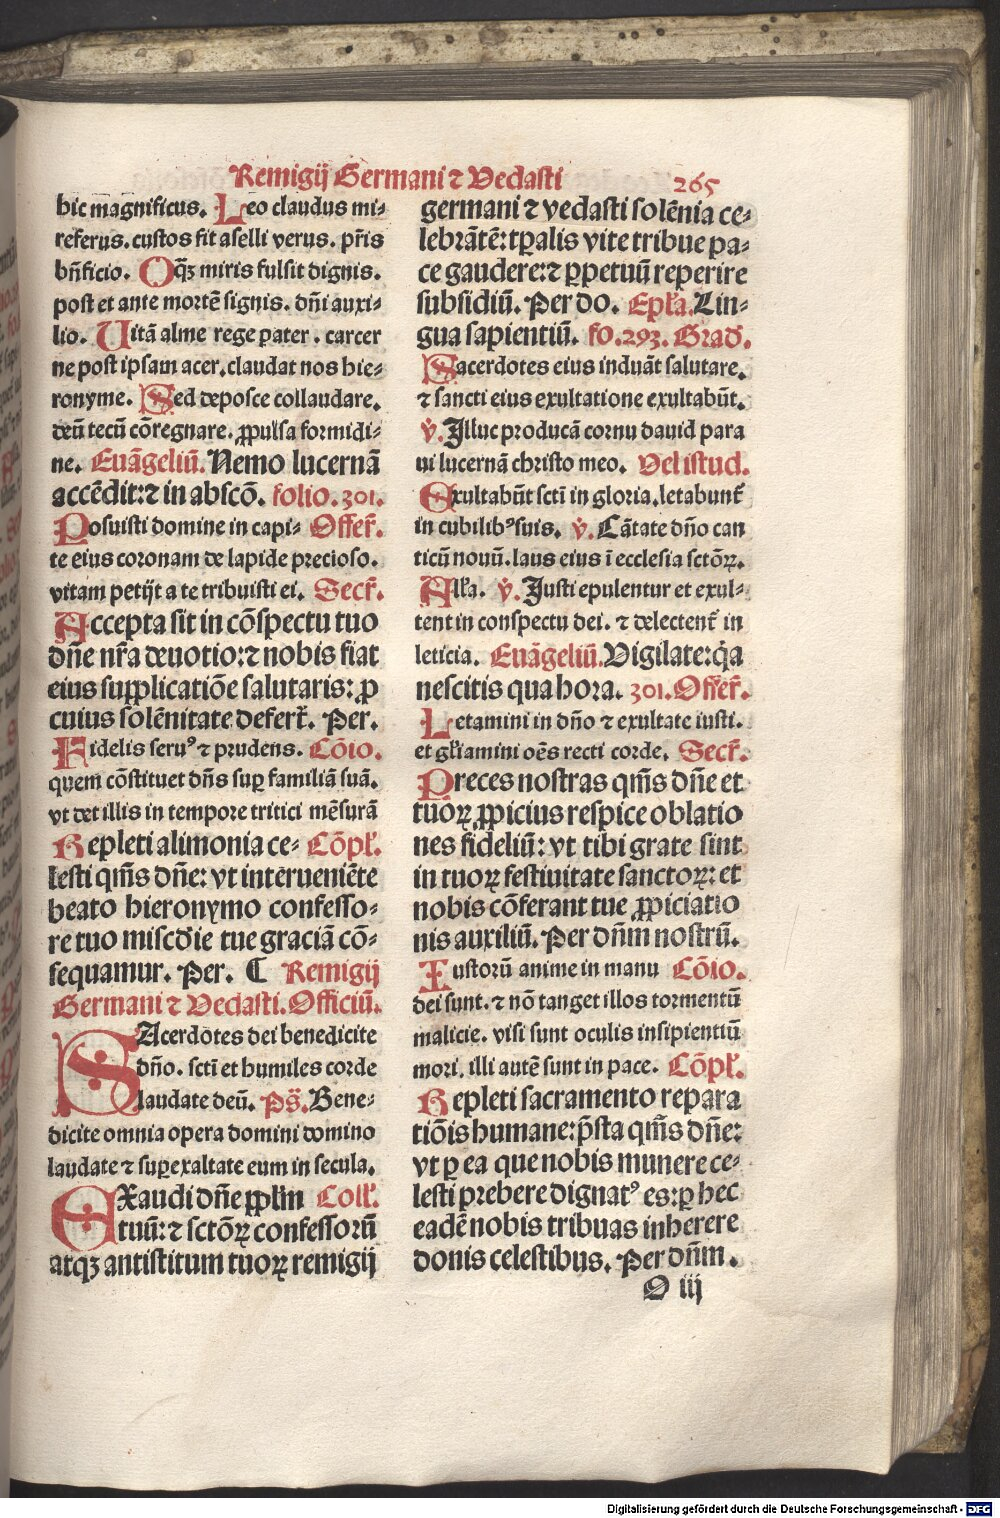 Remigij Germani ⁊ Vedasti 265
hic magnificus. Leo claudus mi⸗
referus. custos fit aselli verus. pr̄is
bn̄ficio. Oq̄ꝫ miris fulsit dignis.
post et ante mortē signis. dn̄i auxi⸗
lio. Uitā alme rege pater. carcer
ne post ipsam acer. claudat nos hie⸗
ronyme. Sed deposce collaudare.
deū tecū cōregnare. ꝓpulsa formidi⸗
ne. Euāgeliū. Nemo lucernā
accēdit:⁊ in absco̅. folio. 301.
Posuisti domine in capi⸗ Offer̄.
te eius coronam de lapide precioso.
vitam petijt a te tribuisti ei. Secr̄.
Accepta sit in cōspectu tuo
dn̄e nr̄a deuotio:⁊ nobis fiat
eius supplicatiōe salutaris: ꝓ
cuius solēnitate defert̄. Per.
Fidelis seruꝰ ⁊ prudens. Cōio.
quem cōstituet dn̄s suꝑ familiā suā.
vt det illis in tempore tritici mēsurā
Repleti alimonia ce⸗ Cōpl̄.
lesti qm̄s dn̄e: vt interueniēte
beato hieronymo confesso⸗
re tuo misco̅ie tue graciā cō⸗
sequamur. Per. ℂ Remigij
Germani ⁊ Vedasti. Officiū.
SAcerdotes dei benedicite
dn̄o. sc̄ti et humiles corde
laudate deū. Ps̄. Bene⸗
dicite omnia opera domini domino
laudate ⁊ suꝑexaltate eum in secula.
EXaudi dn̄e ꝓpl̄m Coll̄.
tuū:⁊ sctōꝝ confessorū
atqꝫ antistitum tuoꝝ remigij
germani ⁊ vedasti solēnia ce⸗
lebrātē: tꝑalis vite tribue pa⸗
ce gaudere:⁊ ꝑpetuū reperire
subsidiū. Per do. Epl̄a. Lin⸗
gua sapientiū. fo. 293. Grad̄.
Sacerdotes eius induāt salutare.
⁊ sancti eius exultatione exultabūt.
v̄. Illuc producā cornu dauid para
ui lucernā christo meo. Vel istud.
Exultabūt scti in gloria. letabunt̄
in cubilibꝰ suis. v̄. Cātate dn̄o can
ticū nouū. laus eius ī ecclesia sctōꝝ.
All̄a. v̄. Justi epulentur et exul⸗
tent in conspectu dei. ⁊ delectent̄ in
leticia. Euāgeliū. Vigilate: q̄a
nescitis qua hora. 301. Offer̄.
Letamini in dn̄o ⁊ exultate iusti.
et gl̄iamini oēs recti corde. Secr̄.
Preces nostras qm̄s dn̄e et
tuoꝝ ꝓpicius respice oblatio
nes fideliū: vt tibi grate sint
in tuoꝝ festiuitate sanctoꝝ: et
nobis cōferant tue ꝓpiciatio
nis auxiliū. Per dn̄m nostrū.
Iustorū anime in manu Cōio.
dei sunt. ⁊ nō tanget illos tormentū
malicie. visi sunt oculis insipientiū
mori. illi autē sunt in pace. Cōpl̄.
Repleti sacramento repara
tiōis humane: p̄sta qm̄s dn̄e:
vt ꝑ ea que nobis munere ce⸗
lesti prebere dignatꝰ es: ꝑ hec
eadē nobis tribuas inherere
donis celestibus. Per dn̄m.
O iij
Digitalisierung gefördert durch die Deutsche Forschungsgemeinschaft - DFG